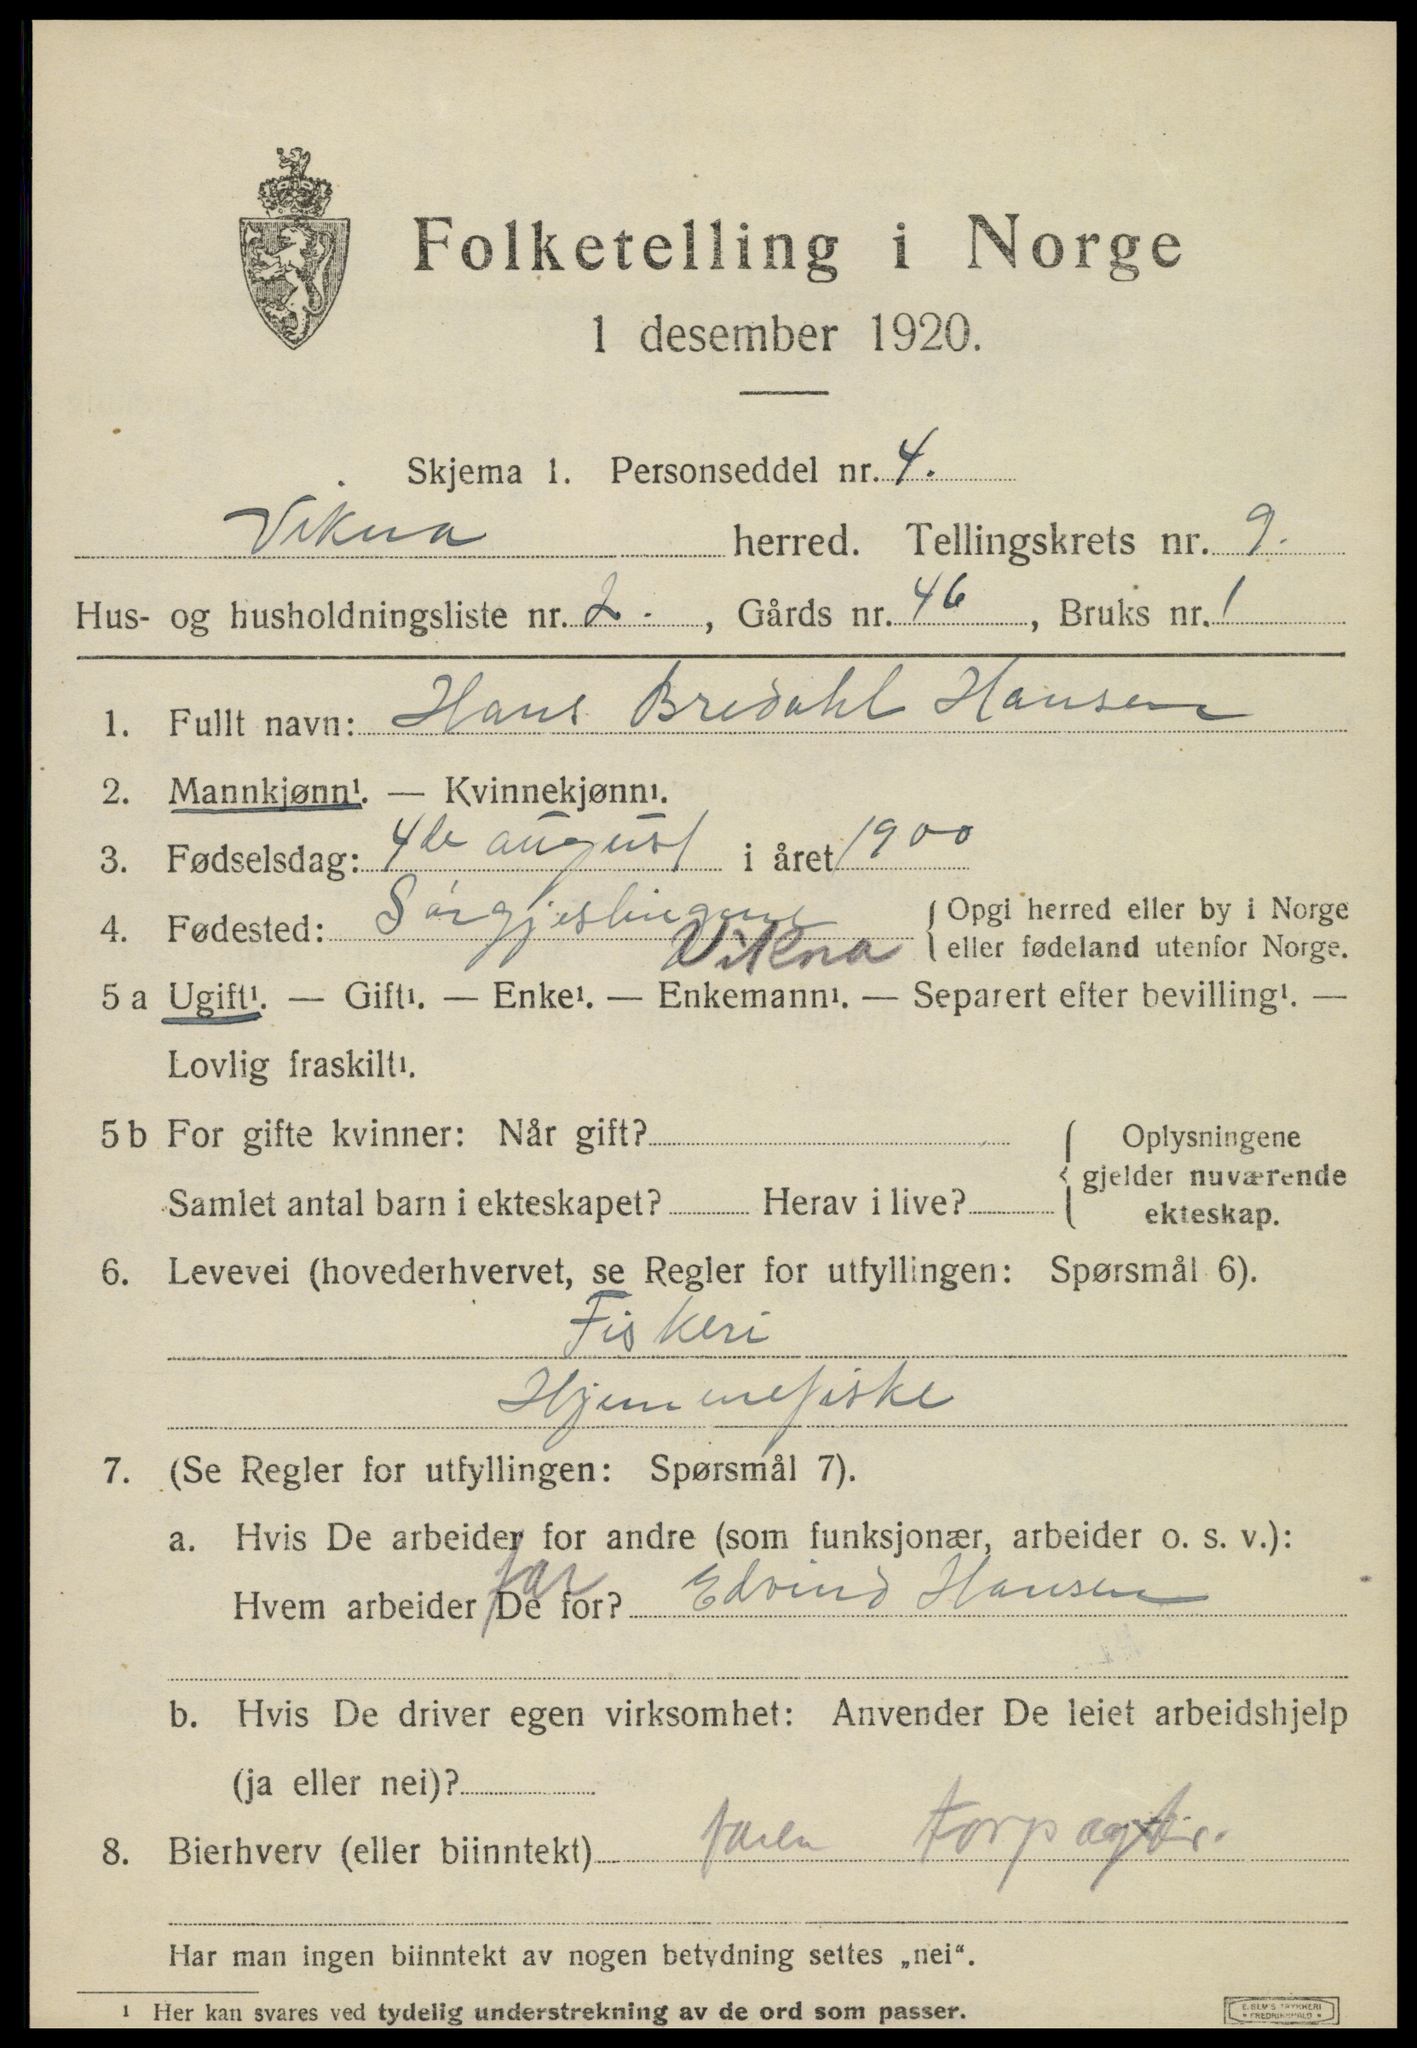 Folketelling i Norge
1 desember 1920.
Skjema 1. Personseddel nr. 4.
Vikna herred. Tellingskrets nr. 9.
Hus- og husholdningsliste nr. 2., Gårds nr. 46, Bruks nr. 1
1. Fullt navn: Hans Bredahl Hansen
2. Mannkjønn¹. — Kvinnekjønn¹.
3. Fødselsdag: 4de august i året 1900
4. Fødested: Sørgjeslingene Vikna { Opgi herred eller by i Norge
eller fødeland utenfor Norge.
5 a Ugift¹. — Gift¹. — Enke¹. — Enkemann¹. — Separert efter bevilling¹. —
Lovlig fraskilt¹.
5 b For gifte kvinner: Når gift? { Oplysningene
gjelder nuværende
Samlet antal barn i ekteskapet? Herav i live? ekteskap.
6. Levevei (hovederhvervet, se Regler for utfyllingen: Spørsmål 6).
Fiskeri
Hjemmefiske
7. (Se Regler for utfyllingen: Spørsmål 7).
a. Hvis De arbeider for andre (som funksjonær, arbeider o. s. v.):
far
Hvem arbeider De for? Edvind Hansen
b. Hvis De driver egen virksomhet: Anvender De leiet arbeidshjelp
(ja eller nei)?
8. Bierhverv (eller biinntekt) faren
Har man ingen biinntekt av nogen betydning settes „nei“.
¹ Her kan svares ved tydelig understrekning av de ord som passer.
E. SEM'S TRYKKERI
FREDRIKSHALD